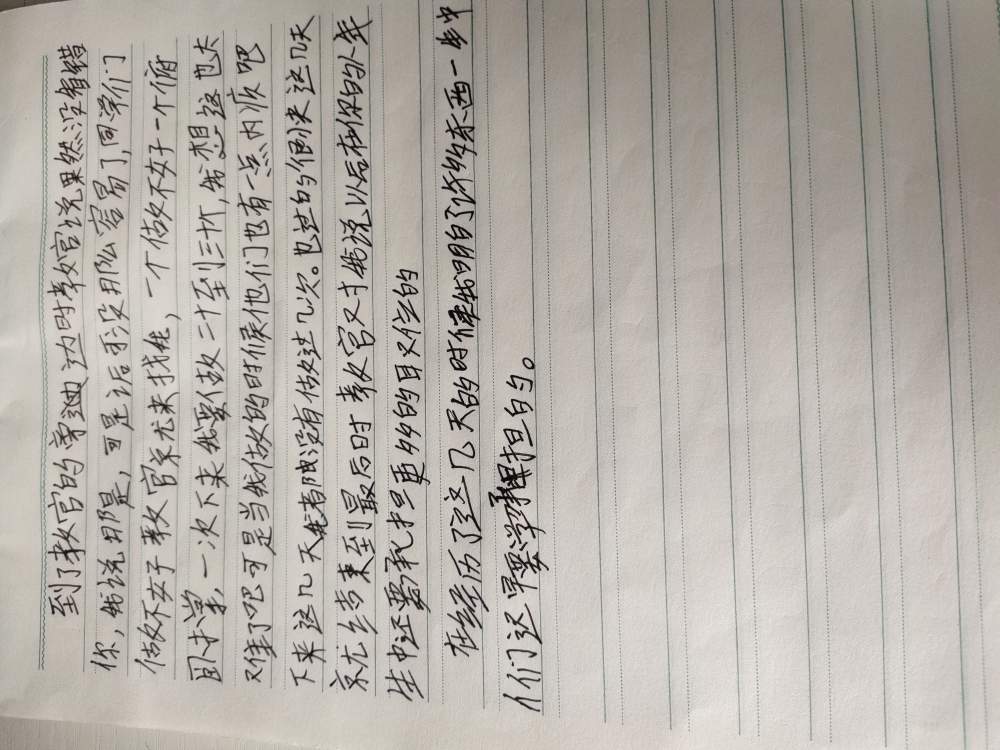 到了教官的旁边时教官说果然没看错
你，我说那是，可是后手没那么容易了，同学们
做不好教官系尤来找我，一个做不好一个俯
卧撑，一次下来我要做二十至到三十个，我想这也太
难了吧可是当我做的时候他们也有一点内疚吧
下来这几天我都没有做过几次。也过的很快这几天
京尤么结束至到最后时教官对我说以后在你的人
生中还要承担更多的自
在经历了这几天的时候我明白了许多东西一
们还要学承担的。